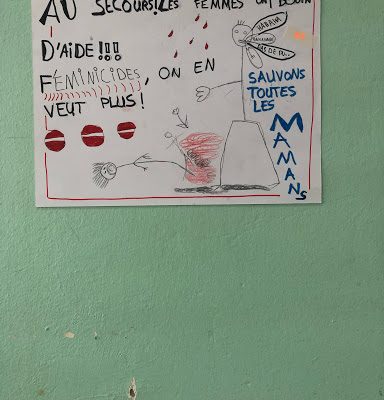 AU SECOURS! LES FEMMES ONT BESOIN
D'AIDE!!!
FÉMINICIDES, ON EN
VEUT PLUS!
HAHAHA
SAUVONS
TOUTES
LES
MAMANS